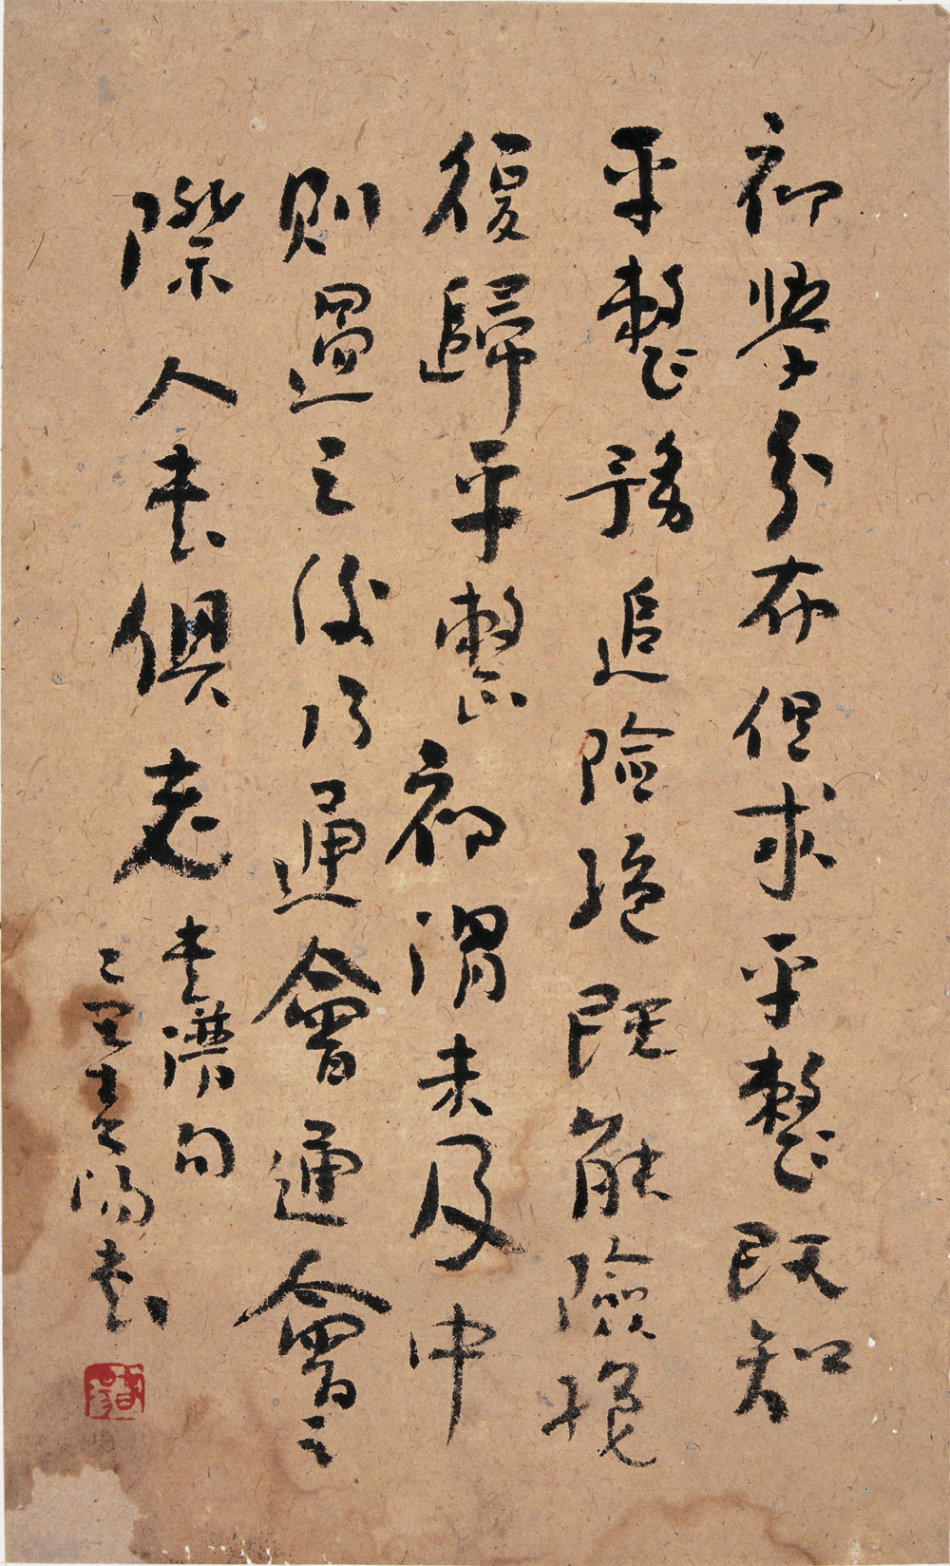 初學分布但求平整既知
平整務追險絕既能險絕
復歸平整初謂未及中
則過之後乃通會通會之
際人書俱老 書譜句
陽書